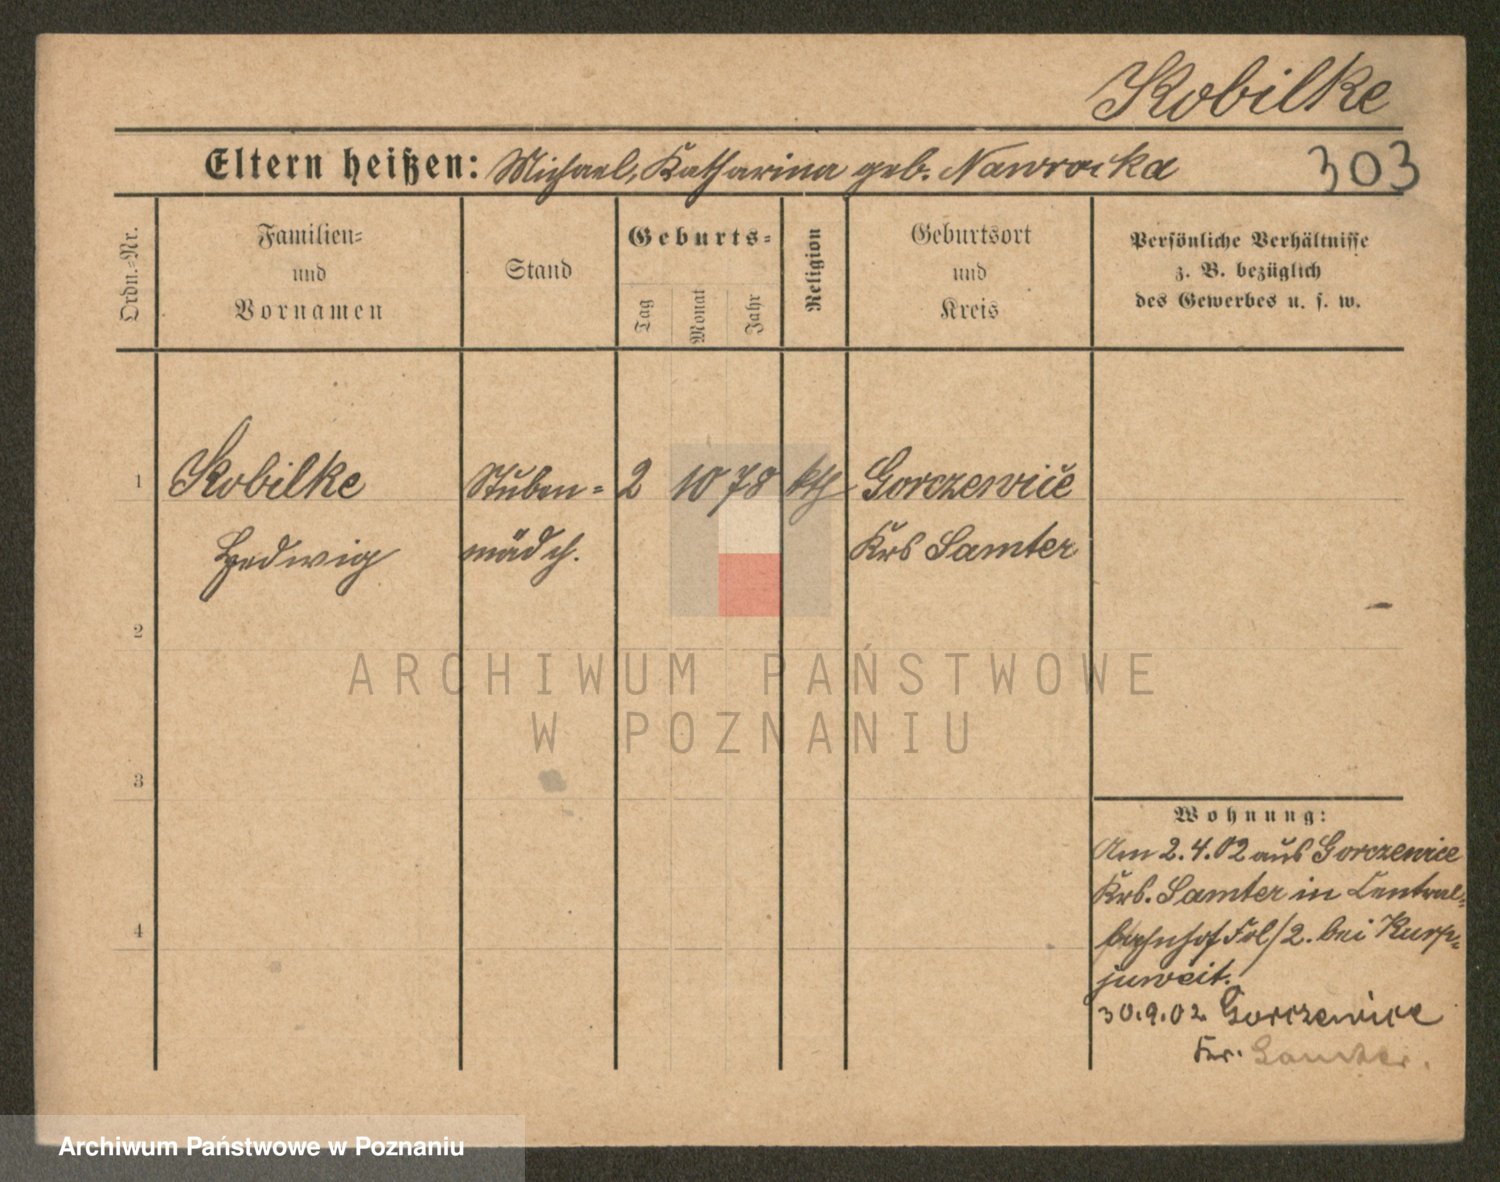 Kobilke
Eltern heißen: Michael, Katharina geb. Nawrocka 303
Ordn.=Nr.
Familien=
und
Vornamen
Stand
Geburts=
Tag
Monat
Jahr
Religion
Geburtsort
und
Kreis
Persönliche Verhältnisse
z. B. bezüglich
des Gewerbes u. s. w.
1 Kobilke Stuben= 2 10 78 kth Gorczewice
Hedwig mädch. Krs Samter
2
ARCHIWUM PAŃSTWOWE
W POZNANIU
3
4
Wohnung:
Am 2.4.02 aus Gorczewice
Krs. Samter in Central=
bahnhof bei Kurp=
juweit.
30.9.02 Gorczewice
Kr. Samter.
Archiwum Państwowe w Poznaniu